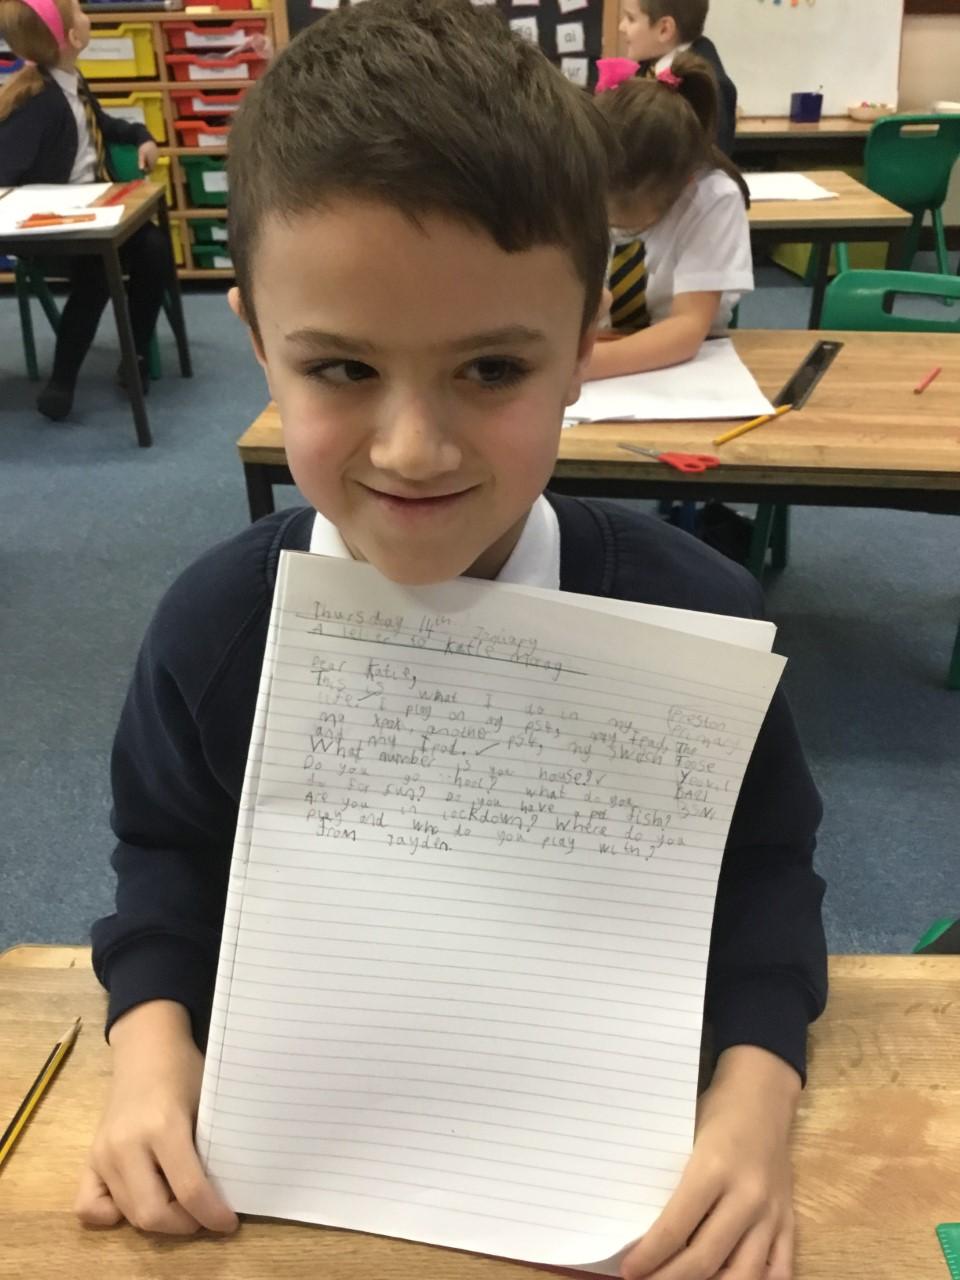 Thursday 14th January
A letter to Katie Morag
Preston
Primary
The
Toose
Yeovil
BA21
3SN
Dear Katie,
This is what I do in my
life. I play on my PS4, my Ipad,
my xpox, another PS4, my Swech
and my Ipad.
What number is you house?
Do you go school? what do you
do for fun? Do you have pet fish?
Are you in lockdown? Where do you
play and who do you play with?
From Jayden.
ai
ur